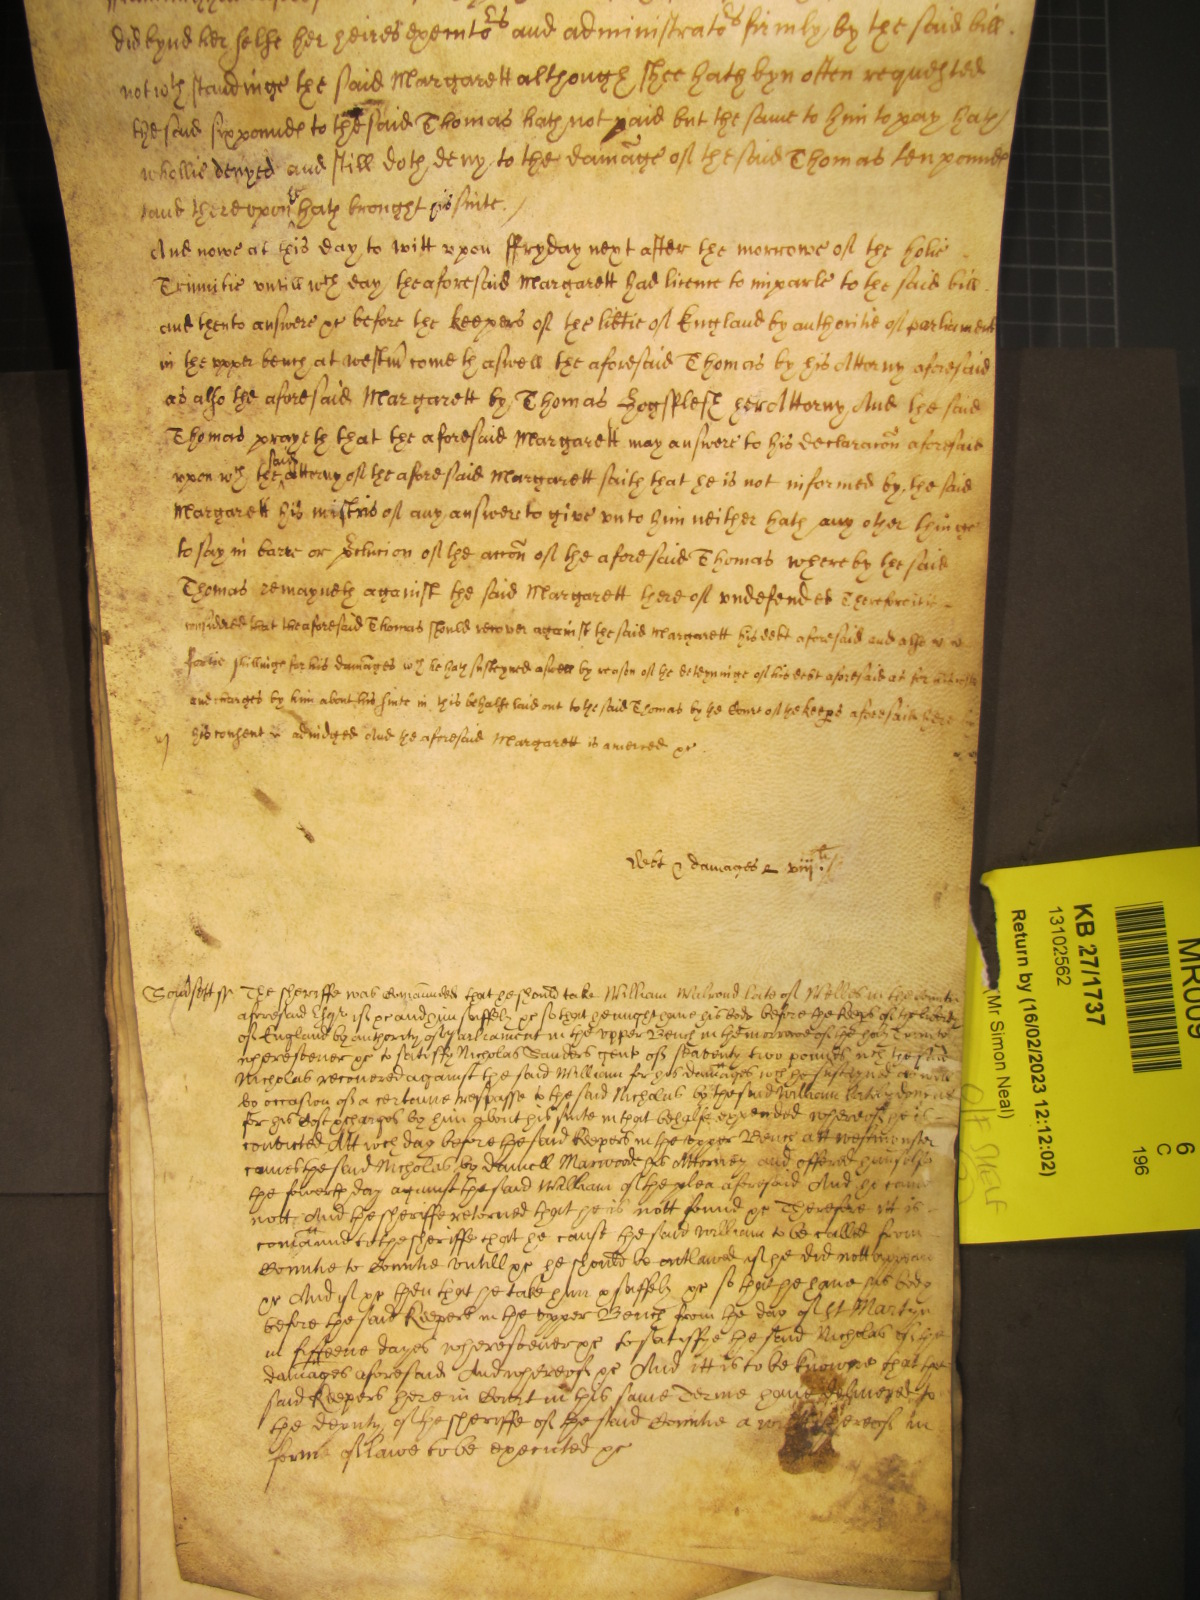 did bynd her selfe her heires executors and administrators firmly by the said bill.
notwth standinge the said Margarett although shee hath byn often requested
the said six pounds to the said Thomas hath not paid but the same to him to pay hath
whollie denyed and still doth deny to the damage of the said Thomas ten pounds
and thereupon he hath brought his suite./
And nowe at this day to witt upon ffryday next after the morrowe of the holie
Trinitie untill wch day the aforesaid Margarett had licence to imparle to the said bill.
and then to answere &c before the keepers of the libtie of England by authoritie of parliament
in the upper bench at westmr cometh aswell the aforesaid Thomas by his Attorny aforesaid
as also the aforesaid Margarett by Thomas Hogsflesh her Attorny And the said
Thomas prayeth that the aforesaid Margarett may answere to his declaracon aforesaid
upon wch the said attorny of the aforesaid Margarett saith that he is not informed by the said
Margarett his mistris of any answere to give unto him neither hath any other thinge
to say in barre or pclusion of the accon of the aforesaid Thomas whereby the said
Thomas remayneth against the said Margarett thereof undefended Therefore it is
considered that the aforesaid Thomas should recover against the said Margarett his debt aforesaid and also
fortie shillings for his damages wch he hath susteyned aswell by reason of the deteyninge of his debt aforesaid as for
and charges by him about his suite in this behalfe laid out to the said Thomas by the Court of the keeps aforesaid here
his consent adiudged And the aforesaid Margarett is amerced &c.
debt & damages viijli./
Somsett ss The sheriffe was commaunded that he should take William Walrond late of Welles in the countie
aforesaid Esqr if &c and him saffely &c so that he might have his body before the Keeps of the liberty
of England by authority of Parliament in the Upper Bench in the morrowe of the holy Trinity
wheresoever &c to satisfy Nicholas Sanders gent of seaventy two pounds wch the said
Nicholas recovered against the said William for his damages wch he susteyned as well
by occasion of a certaine trespasse to the said Nicholas by the said William lately done as
for his Cost & charges by him about his suite in that behalfe expended whereof he is
convicted Att wch day before the said Keepers in the upper Bench att westminster
came the said Nicholas by Daniell Marwoode his Attorney and offered himselfe
the fowerth day against the said William of the plea aforesaid And he came
nott And the sheriffe returned that he is nott found &c Therefore itt is
comaunded to the sheriffe that he cause the said William to be called from
Countie to Countie untill &c he should be outlawed if he did nott appeare
&c And if &c then that he take him & saffely &c so that he have his body
before the said Keepers in the upper Bench from the day of St Martyn
in fifteene dayes wheresoever &c to satisfye the said Nicholas of the
damages aforesaid And whereof &c And itt is to be knowne that the
said Keepers here in Court in this same Terme have delivered to
the deputy of the sheriffe of the said Countie a writt thereof in
forme of lawe to be executed &c
MR009
6
C
196
KB 27/1737
13102562
Return by (16/02/2023 12:12:02)
(Mr Simon Neal)
O/F SHELF